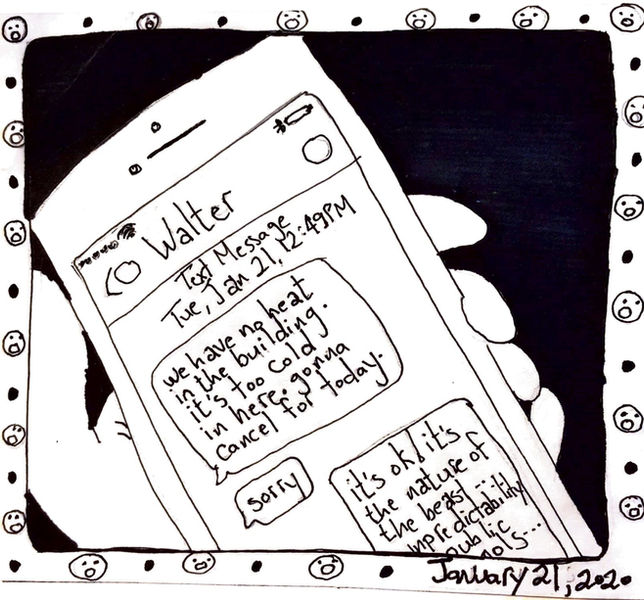 Walter
Text Message
Tue, Jan 21, 12:49PM
we have no heat
in the building.
it's too cold
in here. gonna
cancel for today.
sorry
it's ok! it's
the nature of
the beast ....
unpredictability
public
January 21, 2020